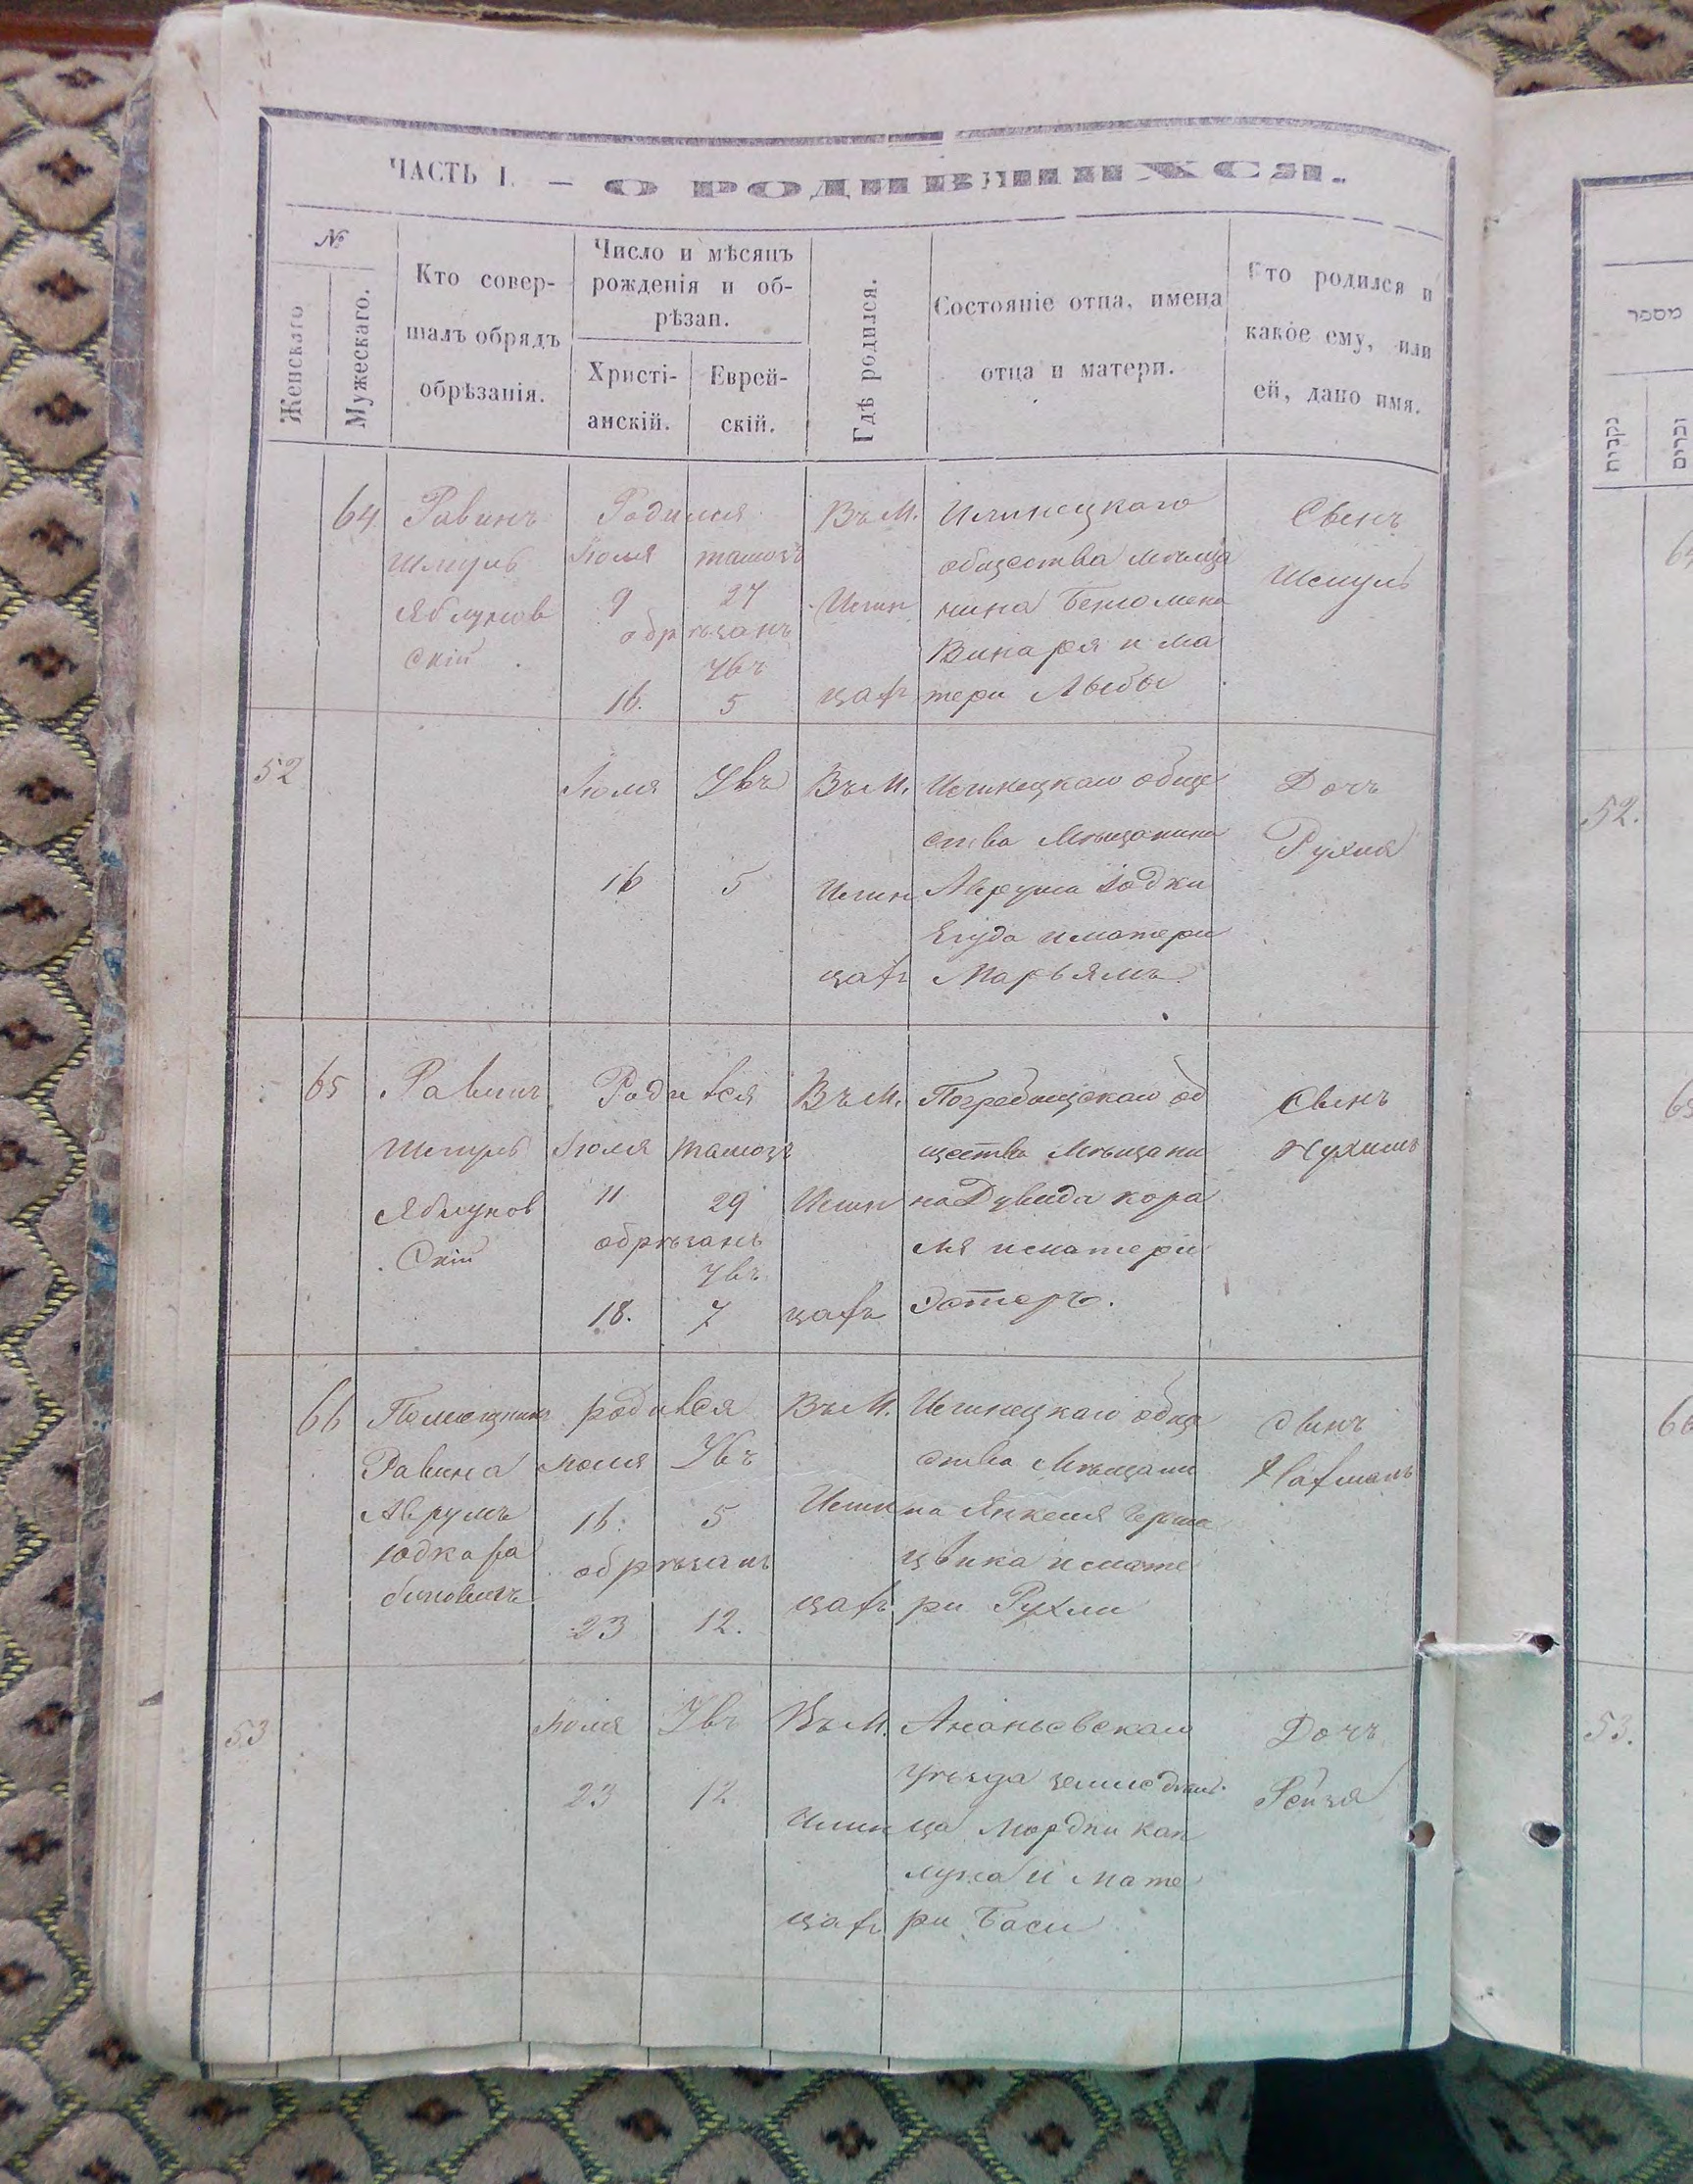 ЧАСТЬ I. — О РОДИВШИХСЯ.
№
Женскаго
Мужескаго.
Кто совер-
шалъ обрядъ
обрѣзанія.
Число и мѣсяцъ
рожденія и об-
рѣзан.
Христі-
анскій.
Еврей-
скій.
Гдѣ родился.
Состояніе отца, имена
отца и матери.
Кто родился и
какое ему, или
ей, дано имя.
64
Равинъ
Шмуль
Яблунов
скій
Родился
Іюля
тамозъ
9
27
обрѣзанъ
Увъ
16.
5
Въ М.
Илин
цахъ
Илинецкаго
общества мѣща
нина
Винаря и ма
тери Лыбы
Сынъ
Шмуль
52
Іюля
Увъ
16
5
Въ М.
Илин
цахъ
Илинецкаго обще
ства Мѣщанина
Аврума Іодки
Егуда и матери
Марьямъ
Дочъ
Рухля
65
Равинъ
Шмуль
Яблунов
скій
Родився
Іюля
тамозъ
11
29
обрѣзанъ
Увъ
18.
7
Въ М.
Илин
цахъ
Погребищскаго об
щества Мѣщани
на Дувида кора
ля и матери
Эстеръ.
Сынъ
Нухимъ
66
Помещникъ
Равина
Аврумъ
Юдка ра
биновичъ
родився
Іюля
Увъ
16.
5
обрѣзанъ
23
12.
Въ М.
Илин
цахъ
Илинецкаго обще
ства Мѣщани
на Янкеля Герша
цвика и мате
ри Рухли
Сынъ
Нахманъ
53
Іюля
Увъ
23
12
Въ М.
Илин
цахъ
Ананьевскаго
Уѣзда
ца Мордки кап
луна и мате
ри Баси
Дочъ
Рейзя
מספר
נקבות
זכרים
52.
53.